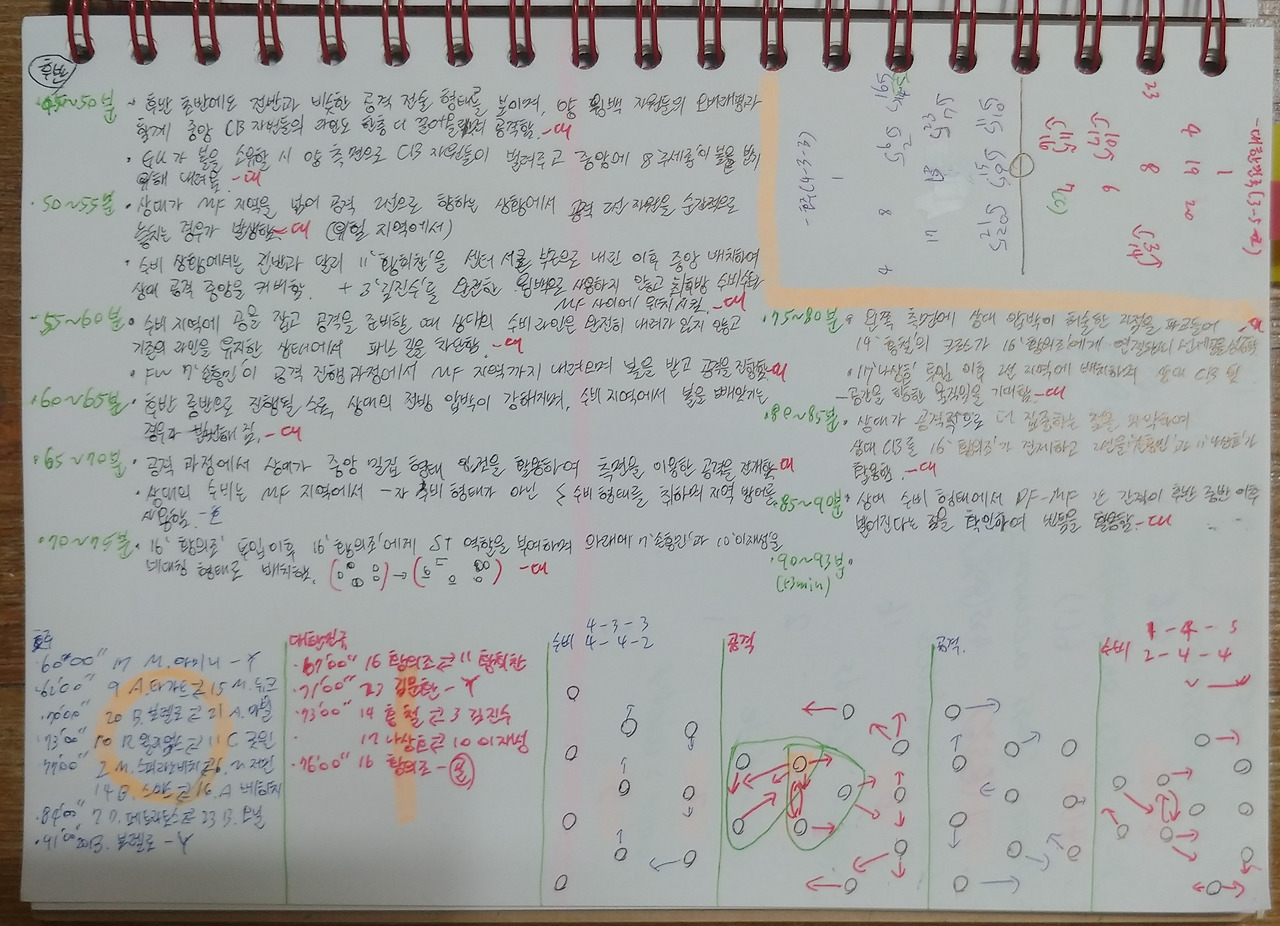 후반
· 45~50분 · 후반 초반에도 전반과 비슷한 공격 전술 형태를 보이며, 양 윙백 자원들의 오버래핑과
함께 중앙 CB 자원들의 라인도 한층 더 끌어올려서 공격함. -대
· GK가 볼을 소유할 시 양 측면으로 CB 자원들이 벌려주고 중앙에 8'주세종'이 볼을 받기
위해 내려옴. -대
· 50~55분 · 상대가 MF 지역을 넘어 공격 2선으로 향하는 상황에서 공격 2선 자원을 순간적으로
놓치는 경우가 발생함. -대 (위험 지역에서)
· 수비 상황에서는 전반과 달리 11'황희찬'을 센터 서클 부근으로 내린 이후 중앙 배치하여
상대 공격 중앙을 커버함. + 3'김진수'를 완전한 윙백으로 사용하지 않고 최후방 수비수와
MF 사이에 위치시킴. -대
· 55~60분 · 수비 지역에 공을 잡고 공격을 준비할 때 상대의 수비 라인은 완전히 내려가 있지 않고
기존의 라인을 유지한 상태에서 패스 길을 차단함. -대
· FW 7'손흥민'이 공격 진행 과정에서 MF 지역까지 내려오며 볼을 받고 공격을 진행함. -대
· 60~65분 · 후반 중반으로 진행될 수록, 상대의 전방 압박이 강해지며, 수비 지역에서 볼을 빼앗기는
경우가 발생해 짐. -대
· 65~70분 · 공격 과정에서 상대가 중앙 밀집 형태 인것을 활용하여 측면을 이용한 공격을 전개함. -대
· 상대의 수비는 MF 지역에서 一자 수비 형태가 아닌 く 수비 형태를 취하며 지역 방어를
사용함. -호
· 70~75분 · 16'황의조' 투입 이후 16'황의조'에게 ST 역할을 부여하며 아래에 7'손흥민'과 10'이재성'을
비대칭 형태로 배치함. -대
· 75~80분 · 왼쪽 측면에 상대 압박이 허술한 지역을 파고들어
19'홍철'의 크로스가 16'황의조'에게 연결되며 선제골을
· 17'나상호' 투입 이후 2선 지역에 배치하며 상대 CB 뒷
공간을 향한 움직임을 기대함. -대
· 80~85분 · 상대가 공격적으로 더 집중하는 점을 파악하여
상대 CB를 16'황의조'가 견제하고 2선을 '손흥민'과 17'나상호'가
활용함. -대
· 85~90분 · 상대 수비 형태에서 DF-MF 간 간격이 후반 중반 이후
벌어진다는 점을 확인하여 빈틈을 활용함. -대
· 90~93분 ·
(+3min)
-대한민국(3-5-2)
1
4 19 20
23
8
6
7(c)
-호주(4-3-3)
1
8
4
17
호주
· 60'00" 17 M.아미니 - Y
9 A.타가트 ⇄ 15 M.듀크
· 70'00" 20 B.보렐로 ⇄ 21 A.마빌
· 73'00" 10 ⇄ 11 C.굿윈
· 77'00" 2 ⇄ 6
14 B. ⇄ 16. A 베히치
23 B.
· 91'00" 20 B. 보렐로 - Y
대한민국
· 67'00" 16 황의조 ⇄ 11 황희찬
· 71'00" 23 김문환 - Y
· 73'00" 14 홍철 ⇄ 3 김진수
· 17 나상호 ⇄ 10 이재성
· 76'00" 16 황의조 - 골
4-3-3
수비 4-4-2
공격
공격.
수비 2-4-4